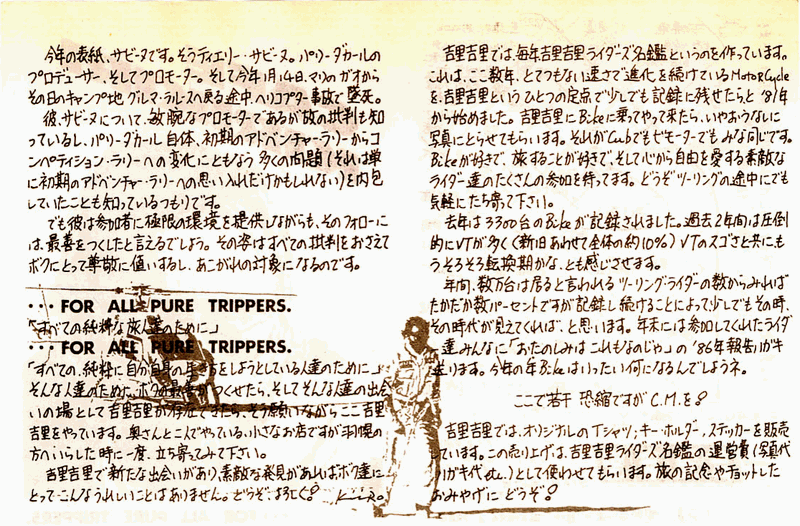 今年の表紙、サビーヌです。そうティエリー・サビーヌ。パリ・ダカールの
プロデューサー、そしてプロモーター。そして今年1月14日、マリのガオから
その日のキャンプ地 グルマ・ラルースへ戻る途中、ヘリコプター事故で墜死。
彼、サビーヌについて、敏腕なプロモーターであるが故の批判も知
っているし、パリ・ダカール自体、初期のアドベンチャー・ラリーからコ
ンペティション・ラリーへの変化にともなう多くの問題(それは単
に初期のアドベンチャー・ラリーへの思い入れだけかもしれない)を内包
していたことも知っているつもりです。
でも彼は参加者に極限の環境を提供しながらも、そのフォローに
は、最善をつくしたと言えるでしょう。その姿はすべての批判をおさえて
ボクにとって尊敬に値いするし、あこがれの対象になるのです。
・・・FOR ALL PURE TRIPPERS.
「すべての純粋な旅人達のために」
・・・FOR ALL PURE TRIPPERS.
「すべての、純粋に自分自身の生き方をしようとしている人達のために」
そんな人達のために、ボクの最善がつくせたら、そしてそんな人達の出会
いの場として吉里吉里が存在できたら、そう願いながらここ吉里
吉里をやっています。奥さんと二人でやっている、小さなお店ですが羽幌の
方へいらした時に一度、立ち寄ってみて下さい。
吉里吉里で新たな出会いがあり、素敵な発見があればボク達に
とってこんなうれしいことはありません。どうぞ、よろしく。
吉里吉里では、毎年吉里吉里ライダーズ名鑑というのを作っています。
これは、ここ数年、とてつもない速さで進化を続けているMotorCycle
を、吉里吉里というひとつの定点で少しでも記録に残せたらと'81年
から始めました。吉里吉里にBikeに乗ってやって来たら、いやおうなしに
写真にとらせてもらいます。それがCubでもゼロモーターでもみな同じです。
Bikeが好きで、旅することが好きで、そして心から自由を愛する素敵な
ライダー達のたくさんの参加を待ってます。どうぞツーリングの途中にでも
気軽にたち寄って下さい。
去年は3300台のBikeが記録されました。過去2年間は圧倒
的にVTが多く(新旧あわせて全体の約10%)VTのスゴさと共にも
うそろそろ転換期かな、とも感じさせます。
年間、数万台は居ると言われるツーリング・ライダーの数からみれば
たかだか数パーセントですが記録し続けることによって少しでもその時、
その時代が見えてくれば、と思います。年末には参加してくれたライダ
達みんなに「おたのしみは これもなのじゃ」の'86年報告が
ります。今年の年Bikeはいったい何になるんでしょうネ。
ここで若干 恐縮ですがC.M.を
吉里吉里では、オリジナルのTシャツ、キー・ホルダー、ステッカーを販売
ています。この売り上げは、吉里吉里ライダーズ名鑑の運営費(写真代
ガキ代etc.)として使わせてもらいます。旅の記念やチョットした
おみやげに どうぞ